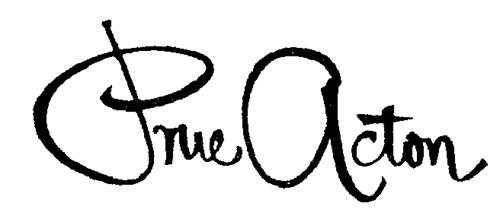 Prue Acton